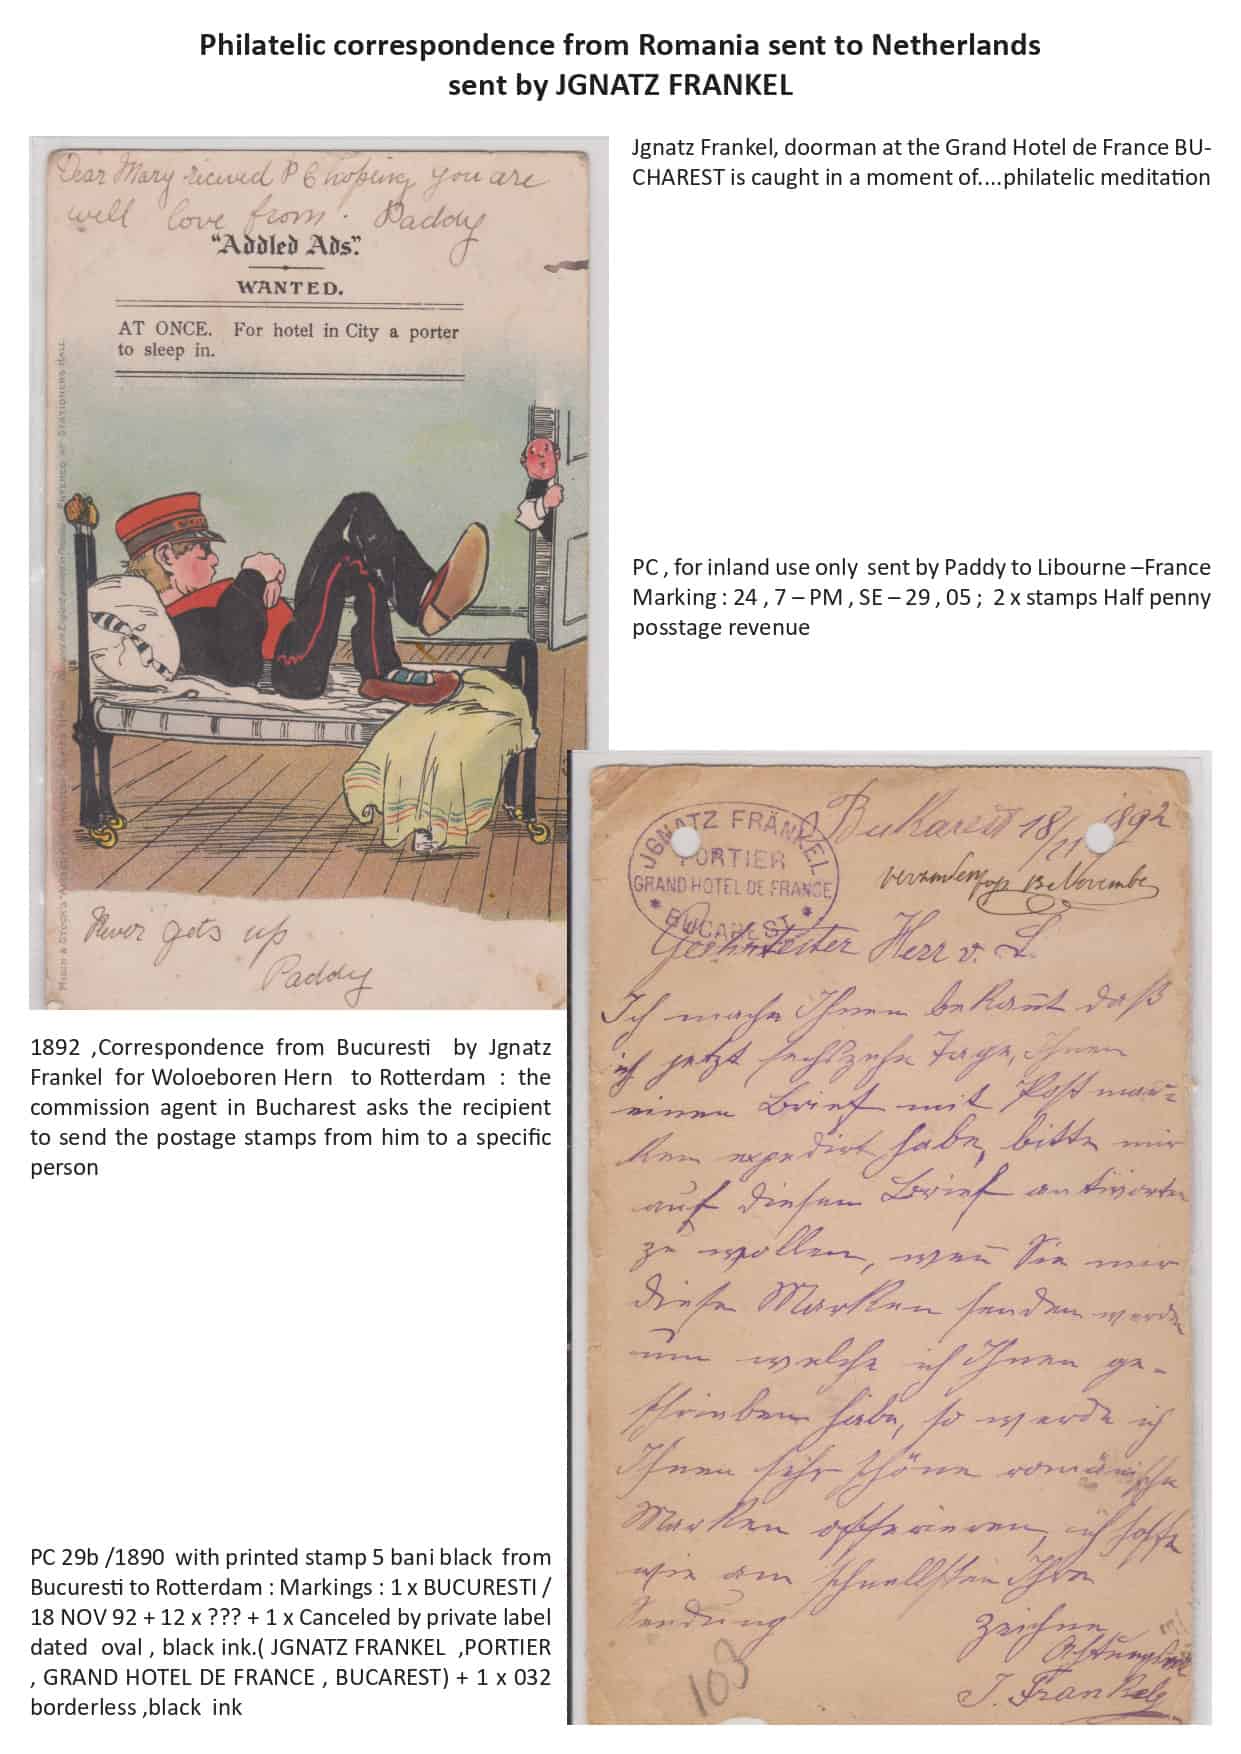 Philatelic correspondence from Romania sent to Netherlands
sent by JGNATZ FRANKEL
Jgnatz Frankel, doorman at the Grand Hotel de France BU-
CHAREST is caught in a moment of....philatelic meditation
Dear Mary rieived PC hoping you are
well love from. Paddy
"Addled Ads".
WANTED.
AT ONCE. For hotel in City a porter
to sleep in.
Never gets up
Paddy
PC , for inland use only sent by Paddy to Libourne –France
Marking : 24 , 7 – PM , SE – 29 , 05 ; 2 x stamps Half penny
posstage revenue
1892 ,Correspondence from Bucuresti by Jgnatz
Frankel for Woloeboren Hern to Rotterdam : the
commission agent in Bucharest asks the recipient
to send the postage stamps from him to a specific
person
PC 29b /1890 with printed stamp 5 bani black from
Bucuresti to Rotterdam : Markings : 1 x BUCURESTI /
18 NOV 92 + 12 x ??? + 1 x Canceled by private label
dated oval , black ink.( JGNATZ FRANKEL ,PORTIER
, GRAND HOTEL DE FRANCE , BUCAREST) + 1 x 032
borderless ,black ink
JGNATZ FRÄNKEL
PORTIER
GRAND HOTEL DE FRANCE
* BUCAREST *
Bukarest 18/11 1892
Geehrtester Herr v. L.
Ich mache Ihnen bekan̄t daß
ich jetzt sechszehn Tage, Ihnen
einen Brief mit Postmar=
ken expedirt habe, bitte mir
auf diesen Brief antworten
zu wollen, wen̄ Sie mir
diese Marken senden werden
um welche ich Ihnen ge-
schrieben habe, so werde ich
Ihnen sehr schöne romänische
Marken offerieren, ich hoffe
wie am schnellsten Ihre
Sendung
Zeichne
Achtungsvoll
J. Frankel
103